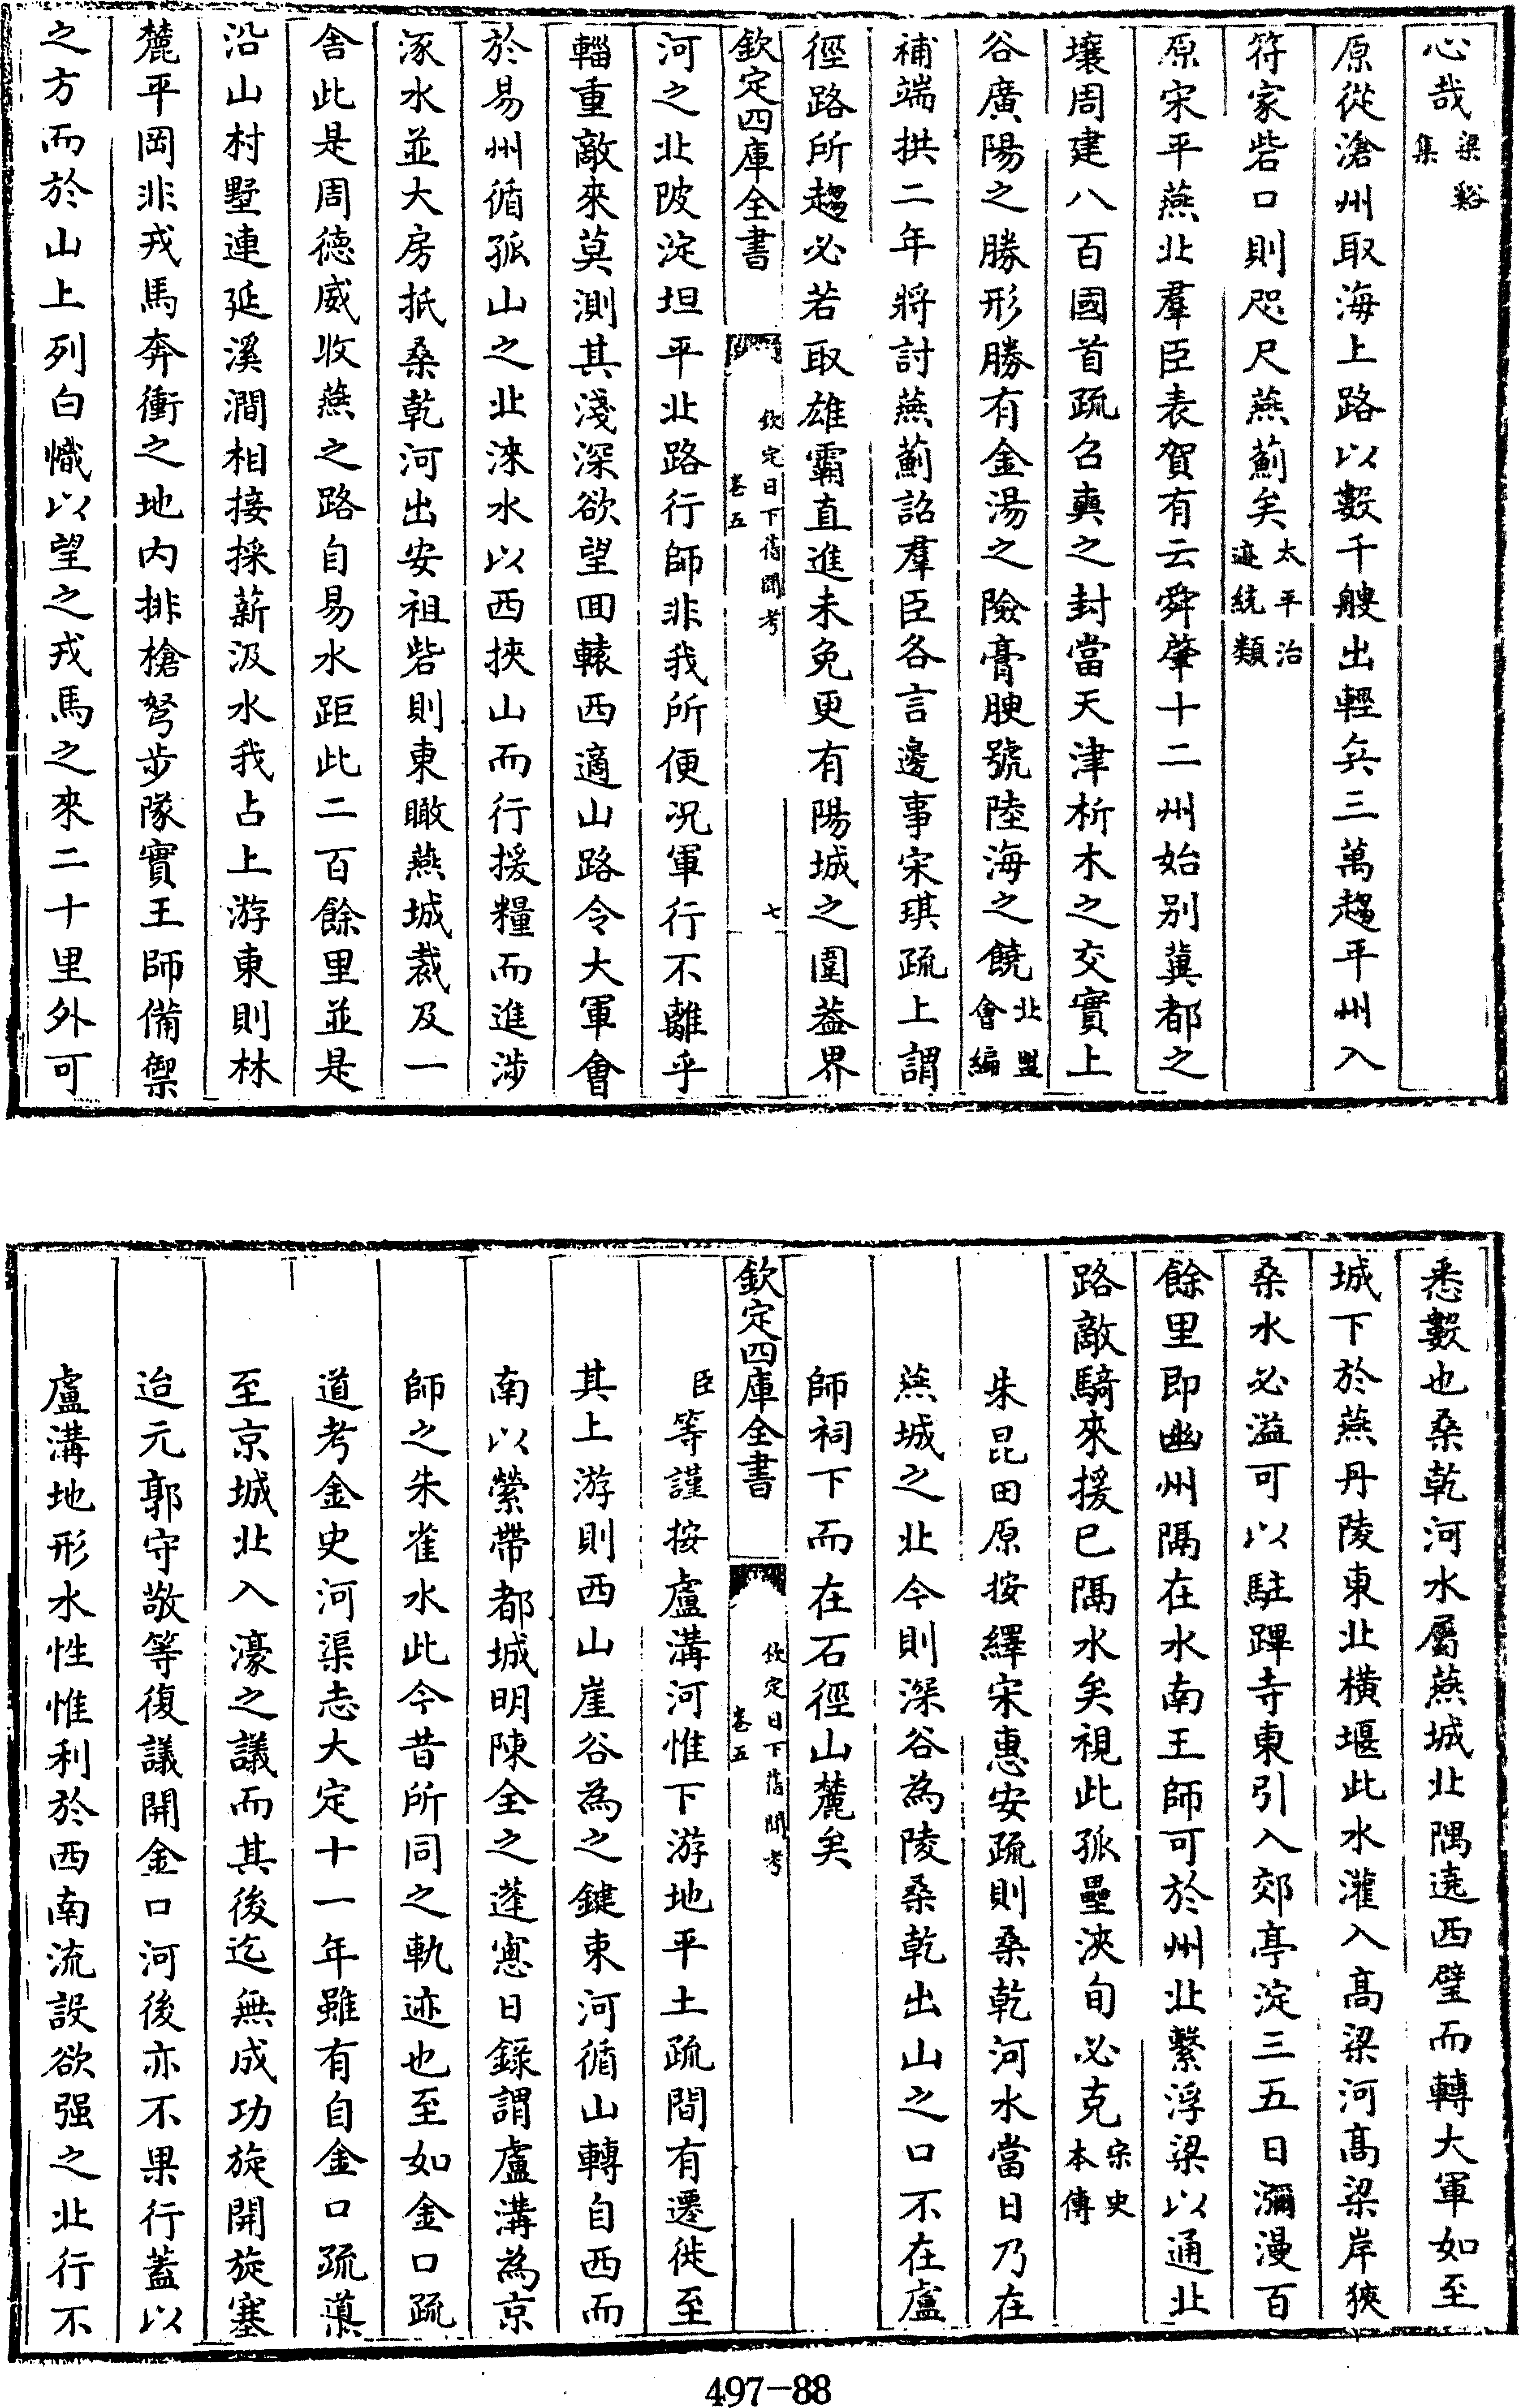 心哉梁谿集
原從滄州取海上路以數千艘出輕兵三萬趨平州入
符家砦口則咫尺燕薊矣太平治迹統類
原宋平燕北羣臣表賀有云舜肇十二州始别冀都之
壤周建八百國首疏召奭之封當天津析木之交實上
谷廣陽之勝形勝有金湯之險膏腴號陸海之饒北盟會編
補端拱二年將討燕薊詔羣臣各言邊事宋琪疏上謂
徑路所趨必若取雄霸直進未免更有陽城之圍葢界
欽定四庫全書 欽定日下舊聞考 卷五 七
河之北陂淀坦平北路行師非我所便况軍行不離乎
輜重敵來莫測其淺深欲望囬轅西適山路令大軍會
於易州循孤山之北淶水以西挾山而行援糧而進涉
涿水並大房抵桑乾河出安祖砦則東瞰燕城裁及一
舍此是周德威收燕之路自易水距此二百餘里並是
沿山村墅連延溪澗相接採薪汲水我占上游東則林
麓平岡非戎馬奔衝之地内排槍弩步隊實王師備禦
之方而於山上列白幟以望之戎馬之來二十里外可
悉數也桑乾河水屬燕城北隅遶西壁而轉大軍如至
城下於燕丹陵東北橫堰此水灌入髙梁河髙梁岸狹
桑水必溢可以駐蹕寺東引入郊亭淀三五日瀰漫百
餘里即幽州隔在水南王師可於州北繫浮梁以通北
路敵騎來援已隔水矣視此孤壘浹旬必克宋史本傳
朱昆田原按繹宋惠安疏則桑乾河水當日乃在
燕城之北今則深谷為陵桑乾出山之口不在盧
師祠下而在石徑山麓矣
欽定四庫全書 欽定日下舊聞考 卷五
臣等謹按盧溝河惟下游地平土疏間有遷徙至
其上游則西山崖谷為之鍵束河循山轉自西而
南以縈帶都城明陳全之蓬窻日錄謂盧溝為京
師之朱雀水此今昔所同之軌迹也至如金口疏
道考金史河渠志大定十一年雖有自金口疏導
至京城北入濠之議而其後迄無成功旋開旋塞
迨元郭守敬等復議開金口河後亦不果行葢以
盧溝地形水性惟利於西南流設欲强之北行不
497-88